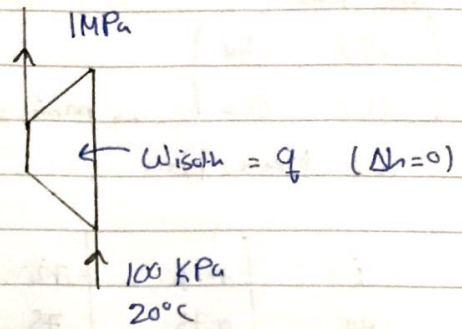 1MPa
Wisoth = q (Δh=0)
100 KPa
20°C